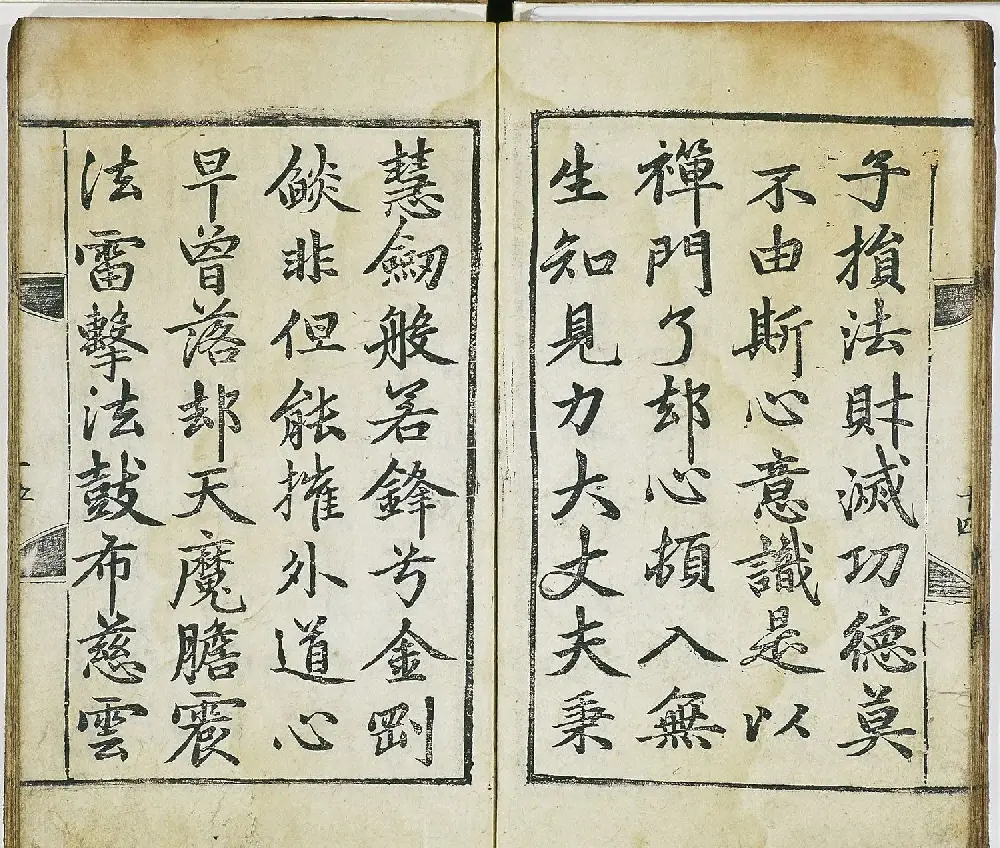 子損法財滅功德莫
不由斯心意識是以
禪門了却心頓入無
生知見力大丈夫秉
慧劒般若鋒兮金剛
燄非但能摧外道心
早曾落却天魔膽震
法雷擊法鼓布慈雲
十四